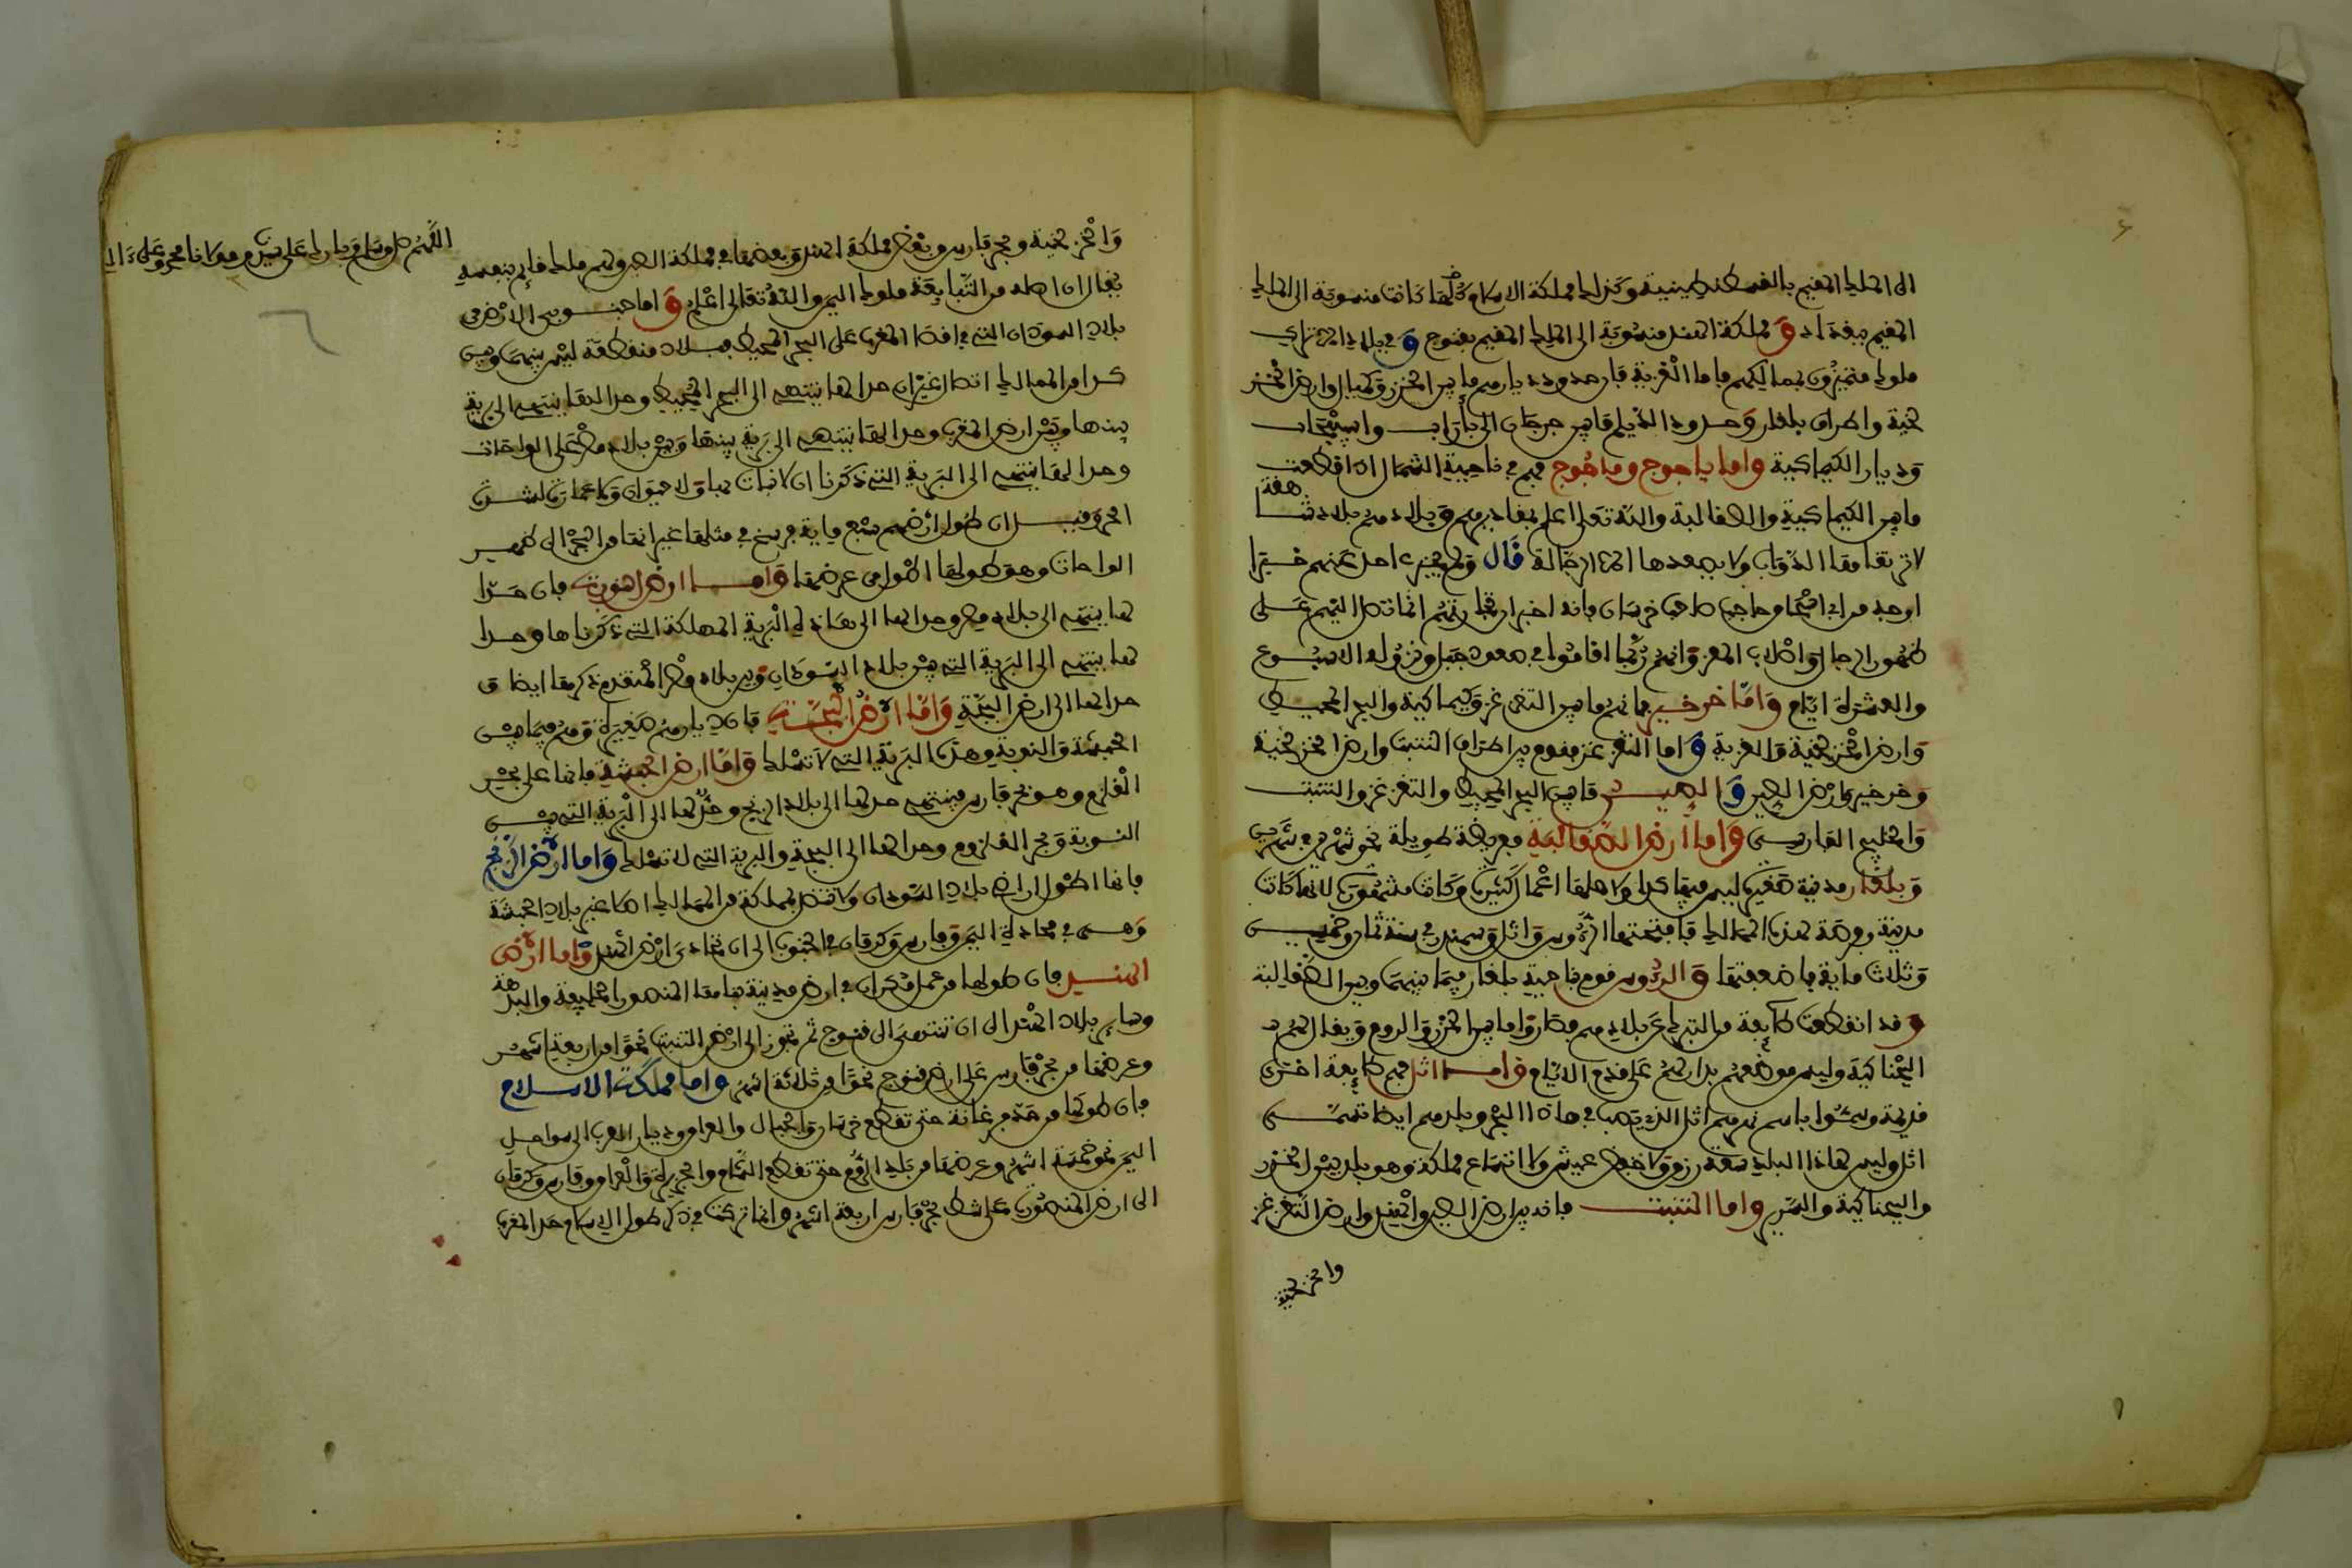 الى الملك المقيم بالقسطنطينية وكذلك مملكة الاسلام كلها كانت منسوبة الى الملك
المقيم ببغداد و مملكة الهند منسوبة الى الملك المقيم بقنوج و في بلاد الاتراك
ملوك متميزون بممالكهم فاما الغزية فان حدود ديارهم ما بين الخزر وكيماك وارض الخز
لخية واطراف بلغار وحدود الديلم ما بين جرجان الى باراب واسبيجاب
وديار الكيماكية واما ياجوج وماجوج فهم في ناحية الشمال اذا قطعت
ما بين الكيماكية والصقالبة والله تعلى اعلم بمقاديرهم وبلادهم بلاد شاهقة
لا ترتقا معها الدواب ولا يصعدها الا الرجالة قال ولم يخبر احد عنهم خبرا
اوجه من ابي اسحاق صاحب خرسان فانه اخبر ان تجارتهم انما تصل اليهم على
ظهور الرجال واصلاب المعز وانهم ربما اقاموا في صعود جبل ونزوله الاسبوع
والعشرة ايام واما خرخيز فانهم ما بين التغرغز وكيماكية والبحر المحيط
وارض الخزلخية والغزية و اما التغرغز فقوم بين اطراف التبت وارض الخزلخية
وخرخيز وارض الصين و الصين ما بين البحر المحيط والتغرغز والتبت
والخليج الفارسي واما ارض الصقالبة فعريضة طويلة نحو شهرين في شهرين
وبلغار مدينة صغيرة ليس فيها كراء ولاهلها اعمال كثيرة وكانت مشهورة لانها كانت
مدينة وفرضة لهذه الممالك فافتتحتها الروس واتل وسمندر في سنة ثمان وخمسين
وثلاث ماية فاضعفتها و الروس قوم بناحية بلغار فيما بينها وبين الصقالبة
و قد انقطعت طائفة من الترك عن بلادهم فصاروا ما بين الخزر والروم ويقال لهم
البجناكية وليس موضعهم بدار لهم على قديم الايام واما اثل فهم طائفة اخرى
قديمة وسموا باسم نهرهم اثل الذي يصب في هاذا البحر وبلدهم ايضا تسمى
اثل وليس هاذا البلد سعة رزق ولا خفض عيش ولا اتساع مملكة وهو بلد بين الخزر
والبجناكية والسرير واما التبت فانه بين ارض الصين والهند وارض التغرغز
والخزلخية
اللهم صل وسلم وبارك على سيدنا ومولانا محمد وعلى ءاله
والخزلخية وبحر فارس وبعض مملكة الهند وبعضها في مملكة الصين ولهم ملك قايم بنفسه
يقال ان اصله من التبابعة ملوك اليمن والله تعالى اعلم و اما جنوبي الارض من
بلاد السودان التي في اقصا المغرب على البحر المحيط فبلاد منقطعة ليس بينها وبين
كل من الممالك اتصال غير ان حدا لها ينتهي الى البحر المحيط وحدا لها ينتهي الى برية
بينها وبين ارض المغرب وحدا لها ينتهي الى برية بينها وبين بلاد مصر على الواحات
وحدا لها ينتهي الى البرية التي ذكرنا ان لا نبات بها ولا حيوان ولا عمارة لشدة
الحر وقيل ان طول ارضهم سبع ماية فرسخ في مثلها غير انها من البحر الى ظهر
الواحات وهو طولها اطول من عرضها واما ارض النوبة فان حدا
لها ينتهي الى بلاد مصر وحدا لها الى هاذه البرية المهلكة التي ذكرناها وحدا
لها ينتهي الى البرية التي بين بلاد السودان وبين بلاد مصر المتقدم ذكرها ايضا و
حدا لها الى ارض البجة واما ارض البجة فان ديارهم صغيرة وهم فيما بين
الحبشة والنوبة وهذه البرية التي لا تسلك واما ارض الحبشة فانها على بحر
القلزم وهو بحر فارس فينتهي حد لها الى بلاد الزنج وحد لها الى البرية التي بين
النوبة وبحر القلزم وحدا لها الى البجة والبرية التي لا تسلك واما ارض الزنج
فانها اطول اراض بلاد السودان ولا تتصل بمملكة من الممالك اصلا غير بلاد الحبشة
وهي في محاداة اليمن وفارس وكرمان في الجنوب الى ان تحادي ارض الهند واما ارض
الهند فان طولها من عمل مكران في ارض مدينة بناها المنصور الخليفة والبدهة
وساير بلاد السند الى ان تنتهي الى قنوج ثم تجوز الى ارض التبت نحوا من اربعة اشهر
وعرضها من بحر فارس على ارض قنوج نحوا من ثلاثة اشهر واما مملكة الاسلام
فان طولها من حد فرغانة حتى تقطع خرسان والجبال والعراق وديار العرب الى سواحل
اليمن نحو خمسة اشهر وعرضها من بلد الروم حتى تقطع الشام والجزيرة والعراق وفارس وكرمان
الى ارض المنصورة على شط بحر فارس اربعة اشهر وانما تركت في ذكر طول الاسلام حد المغرب